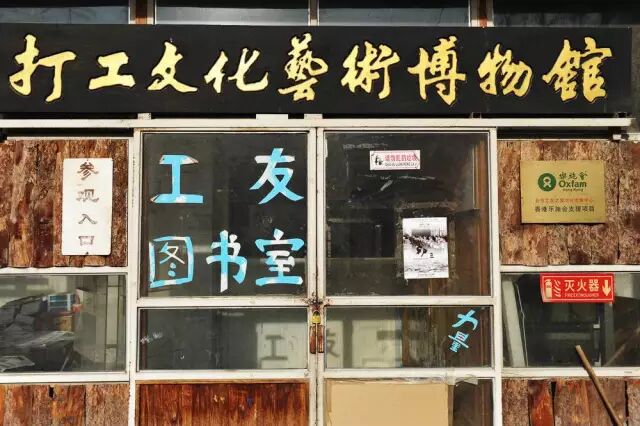 打工文化藝術博物館
参观入口
工友
图书室
请勿乱扔垃圾
樂施會
Oxfam
Hong Kong
香港乐施会支援项目
灭火器
FIRE EXTINGUISHER
力量